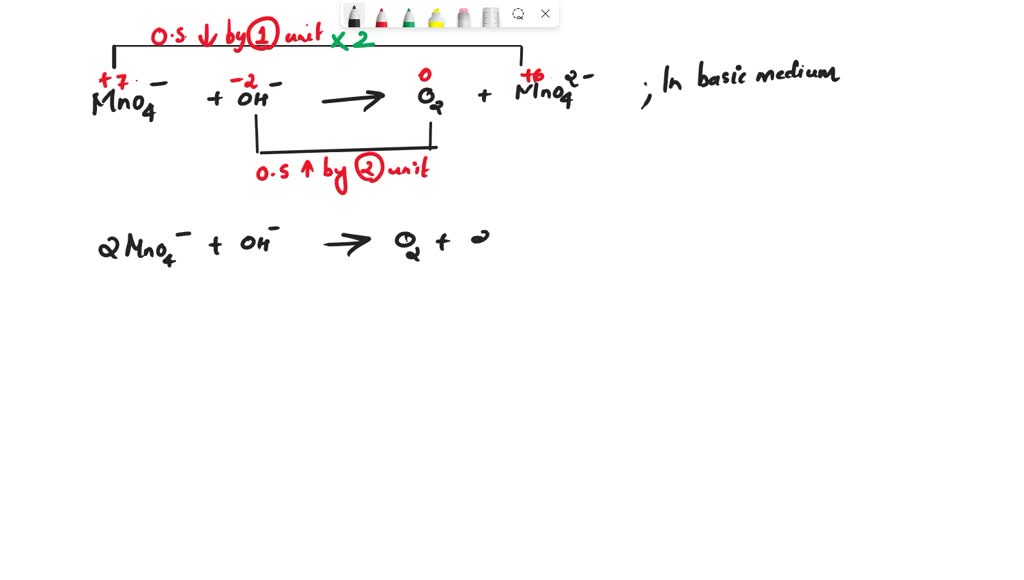 O.S ↓ by 1 unit × 2
+7 -2 0 +6
MnO₄⁻ + OH⁻ → O₂ + MnO₄²⁻ ; In basic medium
O.S ↑ by 2 unit
2MnO₄⁻ + OH⁻ → O₂ + 2